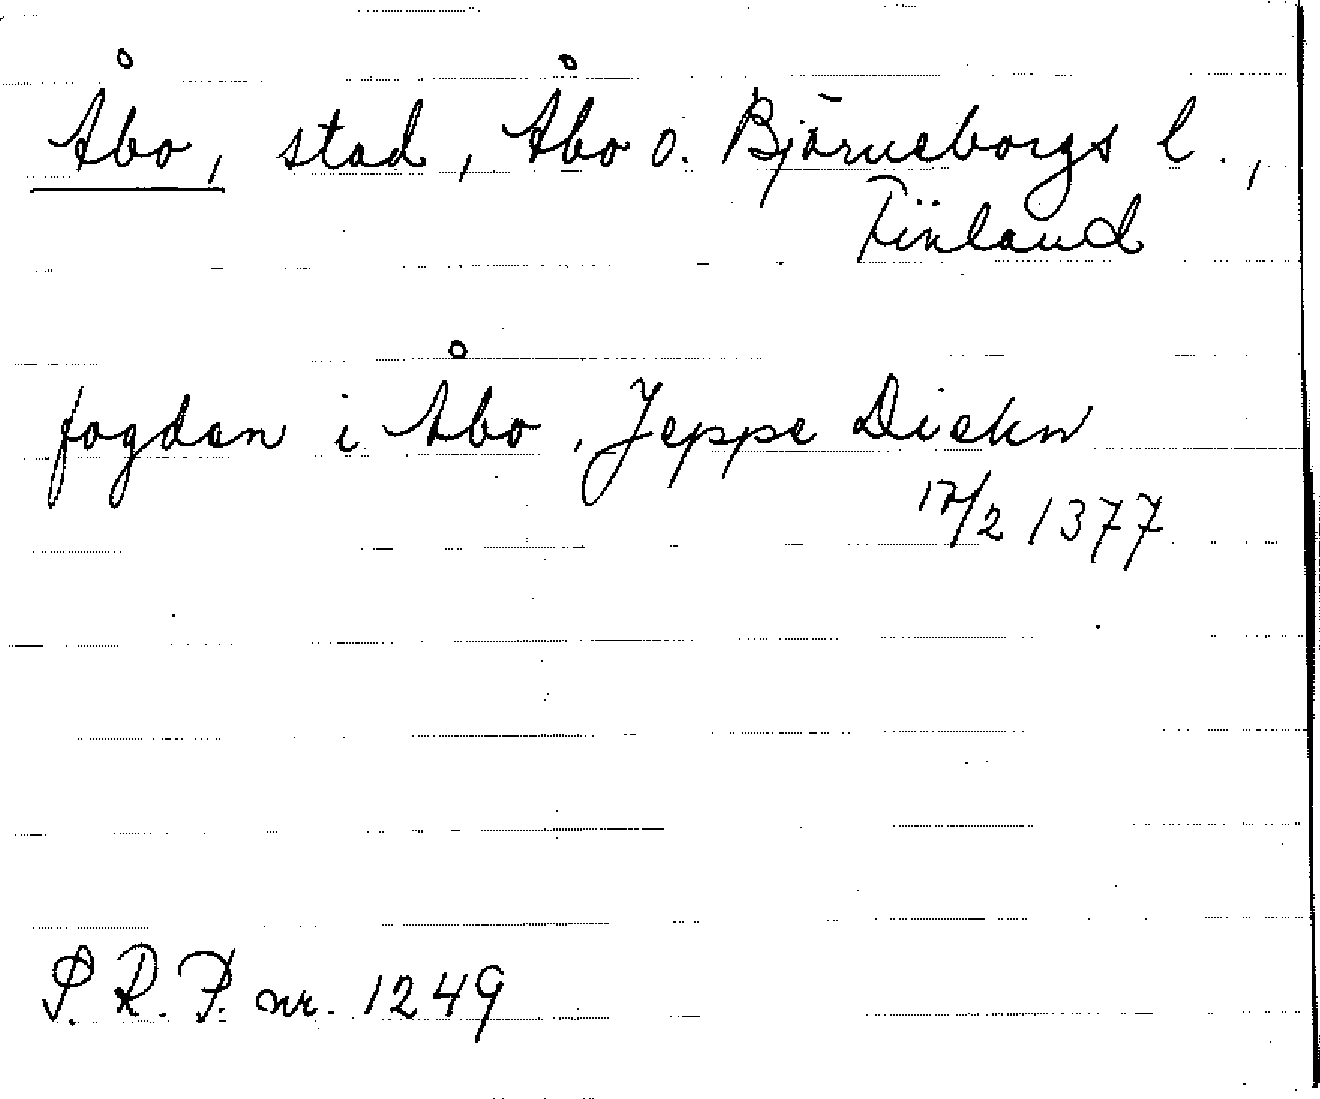 Åbo, stad, Åbo o. Björneborgs l.,
Finland
fogden i Åbo, Jeppe Diekn
12/2 1377
S.R.P. nr. 1249